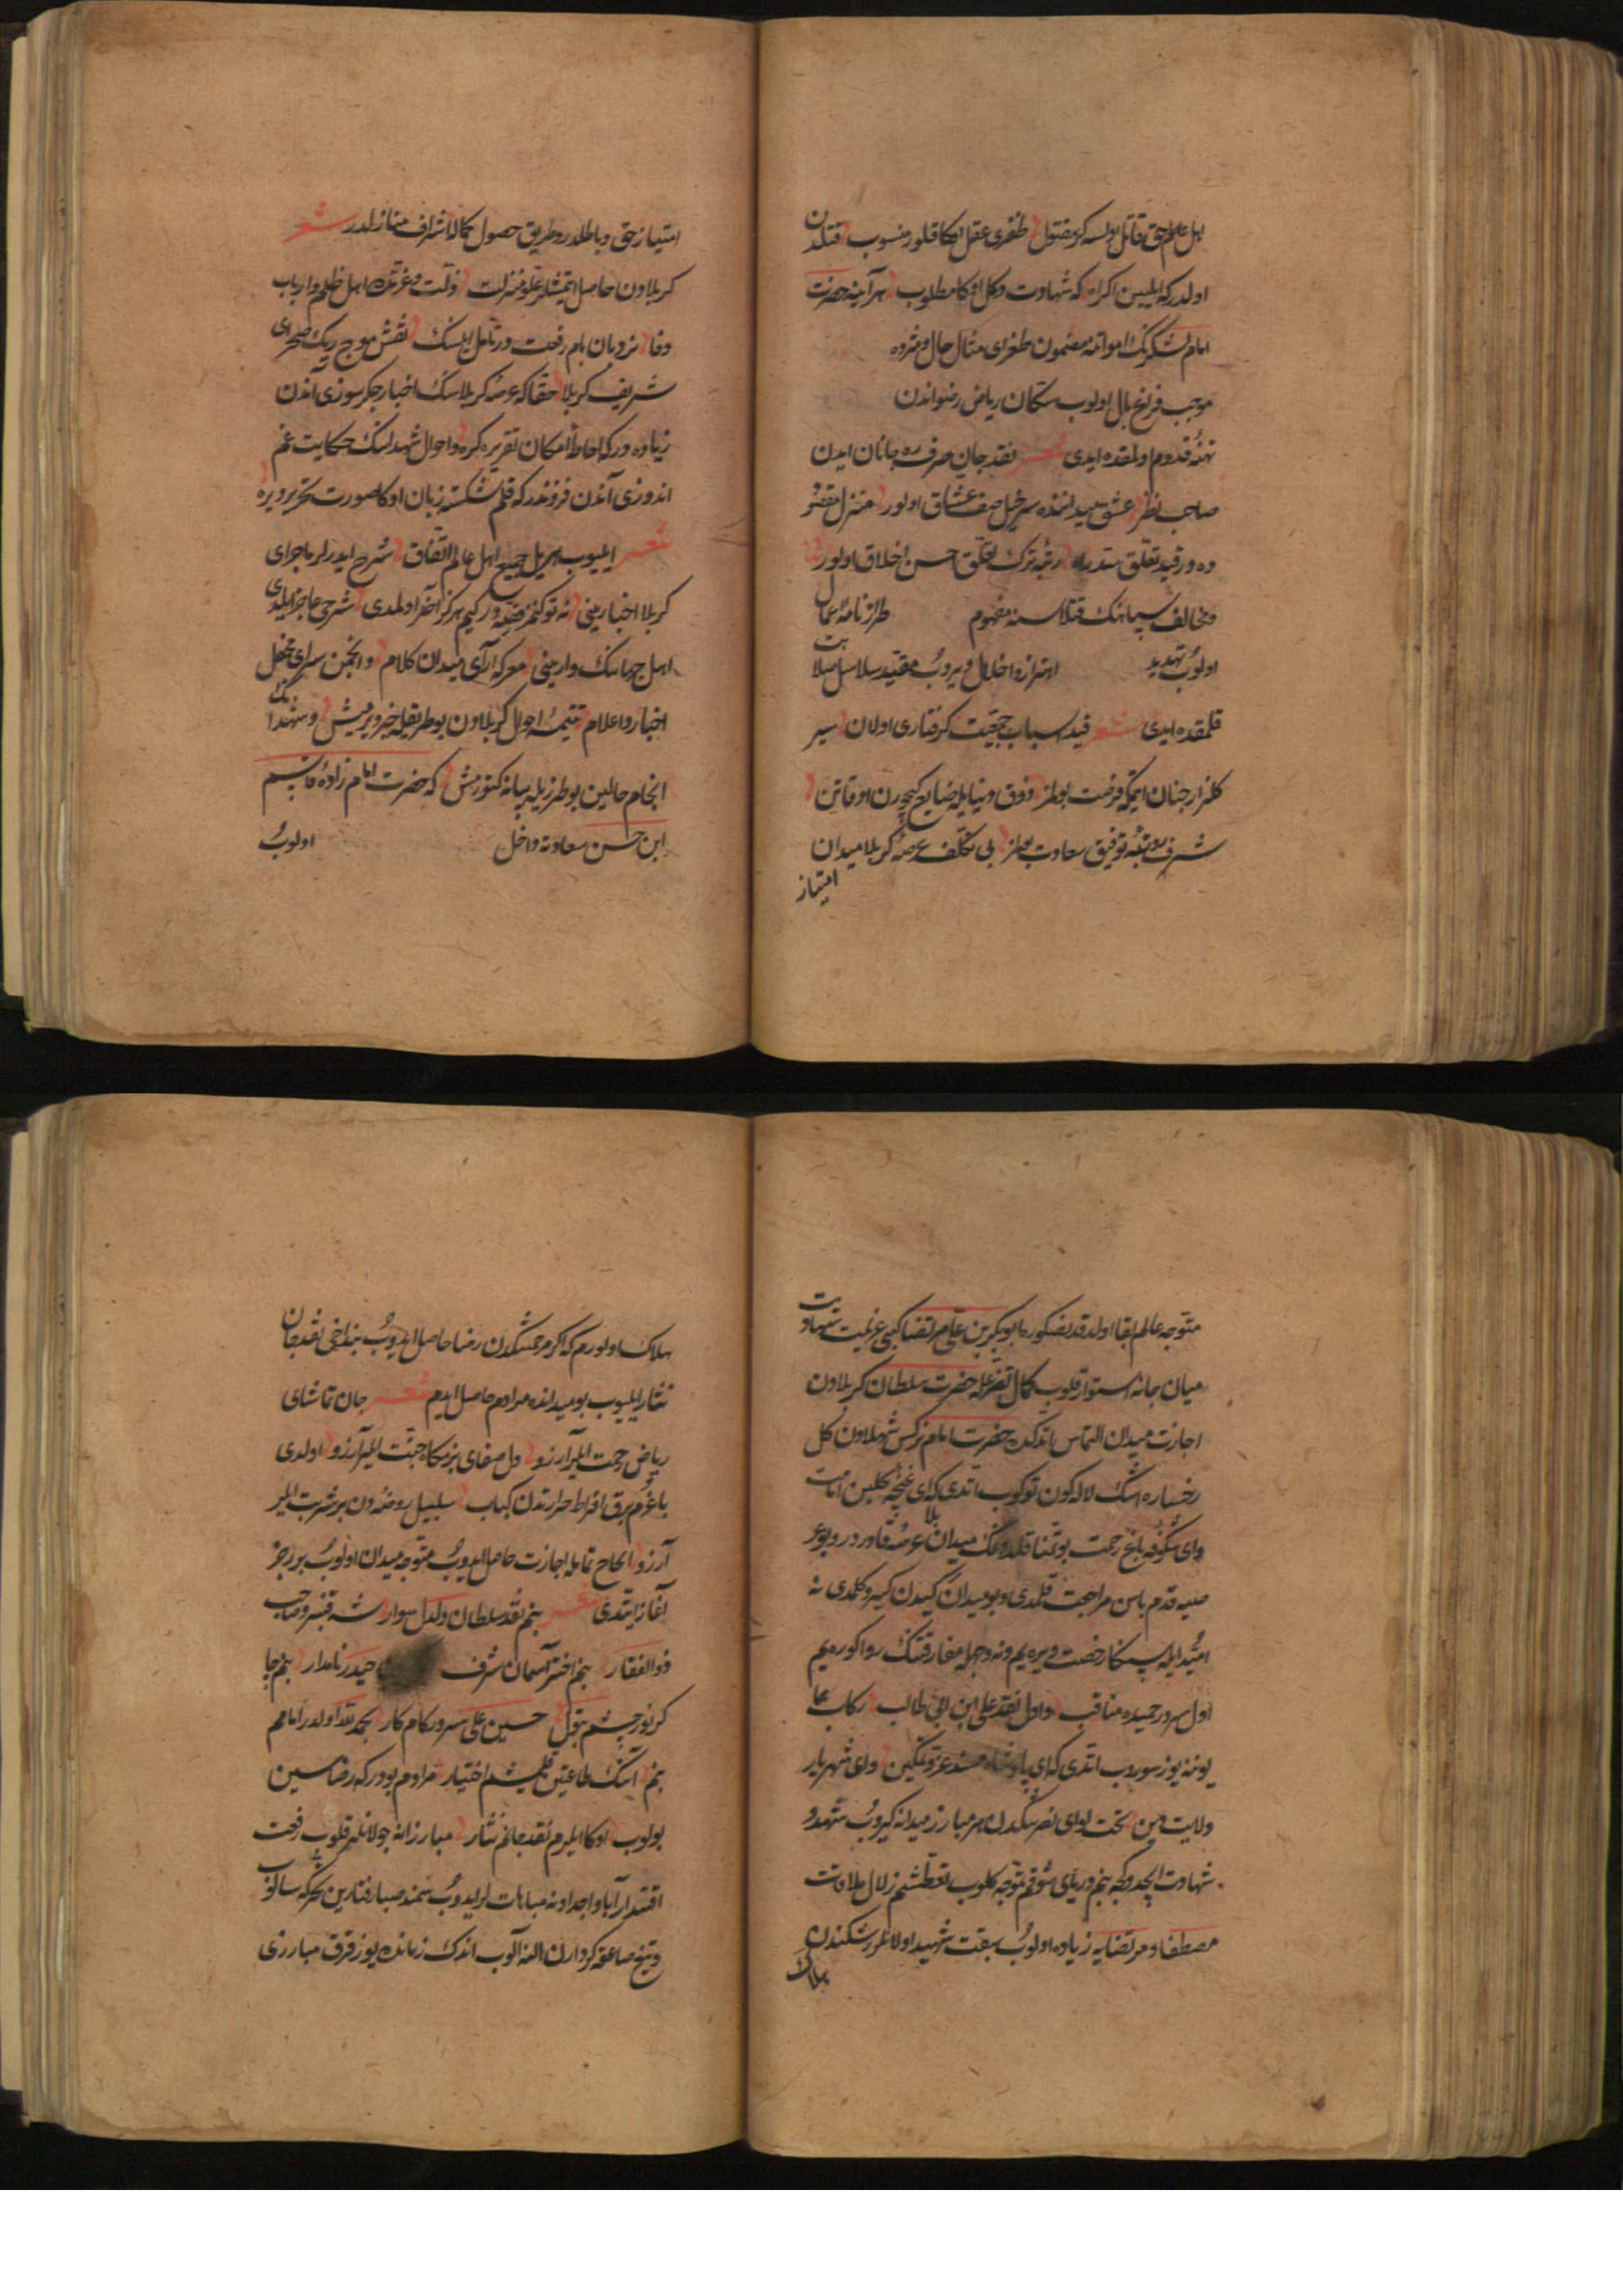 اهل عالم حق قاتل اولسه کر مقتول ظفری عقل اکا قلور منسوب قتلدن
اولدر که ایلیین اکراه که شهادت دکل اوکا مطلوب هر آینه حضرت
امام لشکرینک امواتنه مضمون طغرای مثال حال
موجب فراغ بال اولوب سکان ریاض رضواندن
تهنئه قدوم اولمقده ایدی شعر نقد جان صرف ره جانان ایدن
صاحب نظر عشق میداننده سرخیل صف عشاق اولور منزل مقصود
ده در قید تعلق سد راه رتبه ترک تعلق حسن اخلاق اولور
و مخالف سپاهنک قتلاسنه مفهوم طراز نامه اعمال
اولوب تهدید و اخلال ویروب مقید سلاسل
قلمقده ایدی شعر قید اسباب جمعیت گرفتاری اولان سیر
کلزار جنان ایتمکه فرصت بولمز ذوق دنیایله ضایع کچورن اوقاتن
شرف رتبه توفیق سعادت بولمز بی تکلف عرصه کربلا میدان
امتیاز
امتیاز حق و باطلدر و طریق حصول کمالا اشراف منازلدر شعر
کربلادن حاصل ایتمشلر علو منزلت ذلت و غربتده اهل ظلم و ارباب
وفا نردبان بام رفعت در تامل ایلسنک نقش موج ریک صحرای
شریف کربلا حقا که عرصه کربلاسنک اخبار جکرسوزی آندن
زیاده در که احاطه امکان تقریره کره و احوال شهداسنک حکایت غم
اندوزی آندن فزوندر که قلم شکسته زبان اوکا صورت تحریر ویره
شعر ایلیوب جمیع اهل عالم اتفاق شرح ایدرلر ماجرای
کربلا اخبارینی نه توکنمز قصه در کیم هرکز آخر اولمدی شرحی عاجز ایلدی
اهل جهاننک وارینی معرکه آرای میدان کلام و انجمن سرای محفل
اخبار و اعلام تتمه احوال کربلادن بو طریقله خبر ویرمیش و شهدانک
انجام حالین بو طرزیله بیانه کتورمش که حضرت امام زاده قاسم
ابن حسن سعادته داخل اولوب
متوجه عالم بقا اولدقدنصکره ابوبکر بن علی مرتضا کبی عزیمت شهادت
میان جانه استوار قلوب کمال تضرعله حضرت سلطان کربلادن
اجازت میدان التماس اتدکده حضرت امام نرکس شهلادن کل
رخساره اشک لاله کون توکوب اتدی که ای غنچه کلبن امامت
وای شکوفه باغ رحمت بو تمنا قلدوغک میدان بلا عرصه
قدم باسن مراجعت قلمدی و بو میدان کیدن کیرو کلمدی نه
امید ایله سنکا رخصت ویره یم و نه وجهله مفارقتنک روا کوره یم
اول سرور حمیده مناقب و اول نقد علی ابن ابی طالب رکاب
یوزنه یوز سوروب اتدی که ای پادشاه مسند عز و تمکین وای شهریار
ولایت دین تحت لوای نصرتکدن هر مبارز میدانه کیروب شهد
شهادت ایچدوکجه بنم دریای شوقم تموجه کلوب تعطشم زلال ملاقات
مصطفا و مرتضایه زیاده اولوب سبقت شهید اولانلر رشکندن
هلاک
هلاک اولورم که اکر مرحمتنکدن رضا حاصل ایدوب بنداخی نقد جان
نثار ایلیوب بو میدانده مرادم حاصل ایدم شعر جان تماشای
ریاض رحمت ایلر آرزو دل صفای بزمکاه جنت ایلر آرزو اولدی
باغرم برق افراط حرارتدن کباب سلسبیل روضه دن بر شربت ایلر
آرزو الحاح تمامله اجازت حاصل ایدوب متوجه میدان اولوب بر رجز
آغاز ایتدی شعر بنم نقد سلطان دلدل سوار شه قنبر و صاحب
ذوالفقار بنم اختر آسمان شرف حیدر نامدار بنم چا
کر نور چشم بتول حسین علی سرور کام کار بحمد لله اولدر امامم
بنم آنک طاعتین قلمیشم اختیار مرادم بودر که رضاسین
بولوب اوکا ایلیرم نقد جانم نثار مبارزانه جولانلر قلوب رفعت
اقتدار آبا و اجدادنه مباهاتلر ایدوب سمند صبا رفتارین حرکه سالوب
و تیغ صاعقه کردارن النه آلوب اندک زمانده یوز قرق مبارزی